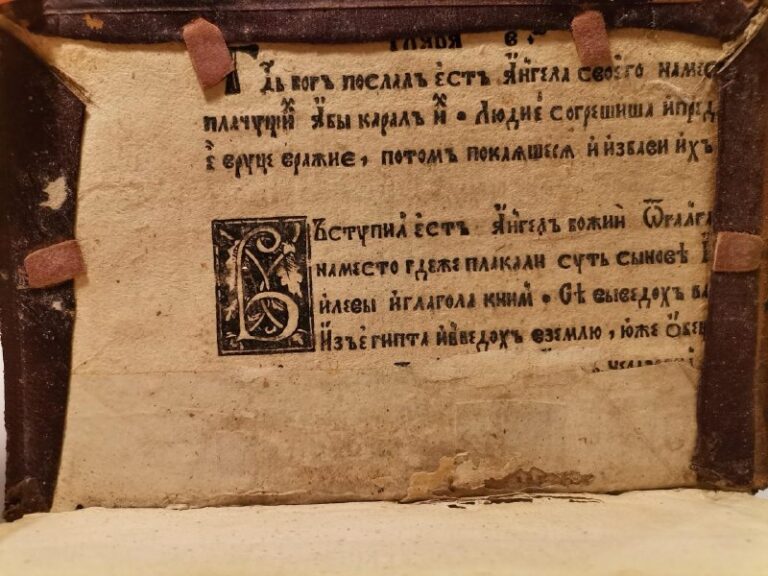 глава в
Гдь богъ послалъ ѣстъ а҆́нгела своего намес
плачущи́х абы каралъ и́х . Людие́ согрешиша ипред
ѣ вруце вражие, потомъ покаяшеся и избави ихъ
Въступил ѣстъ а҆́нгелъ божии ѿгалга
наместо гдеже плакали суть сынове І
илевы иглагола кним . Се выведохъ ва
Изъегипта ивведохъ вземлю, юже обещ